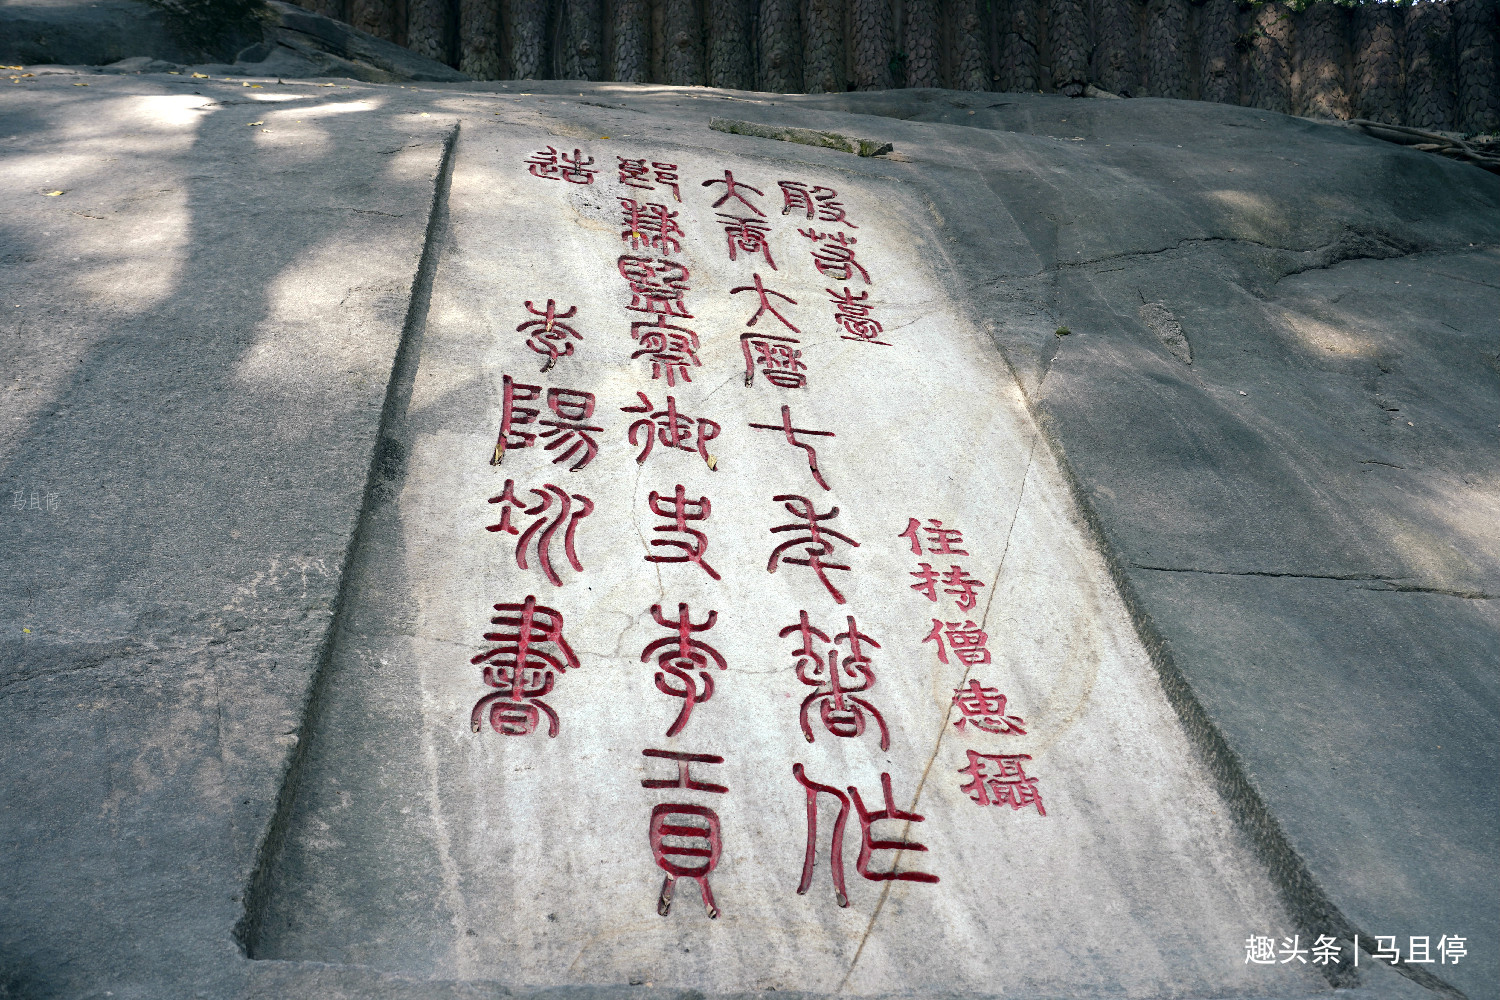 般若臺
住持僧惠攝
大唐大曆七年著作
郎兼監察御史李貢
造 李陽冰書
马且停
趣头条 | 马且停